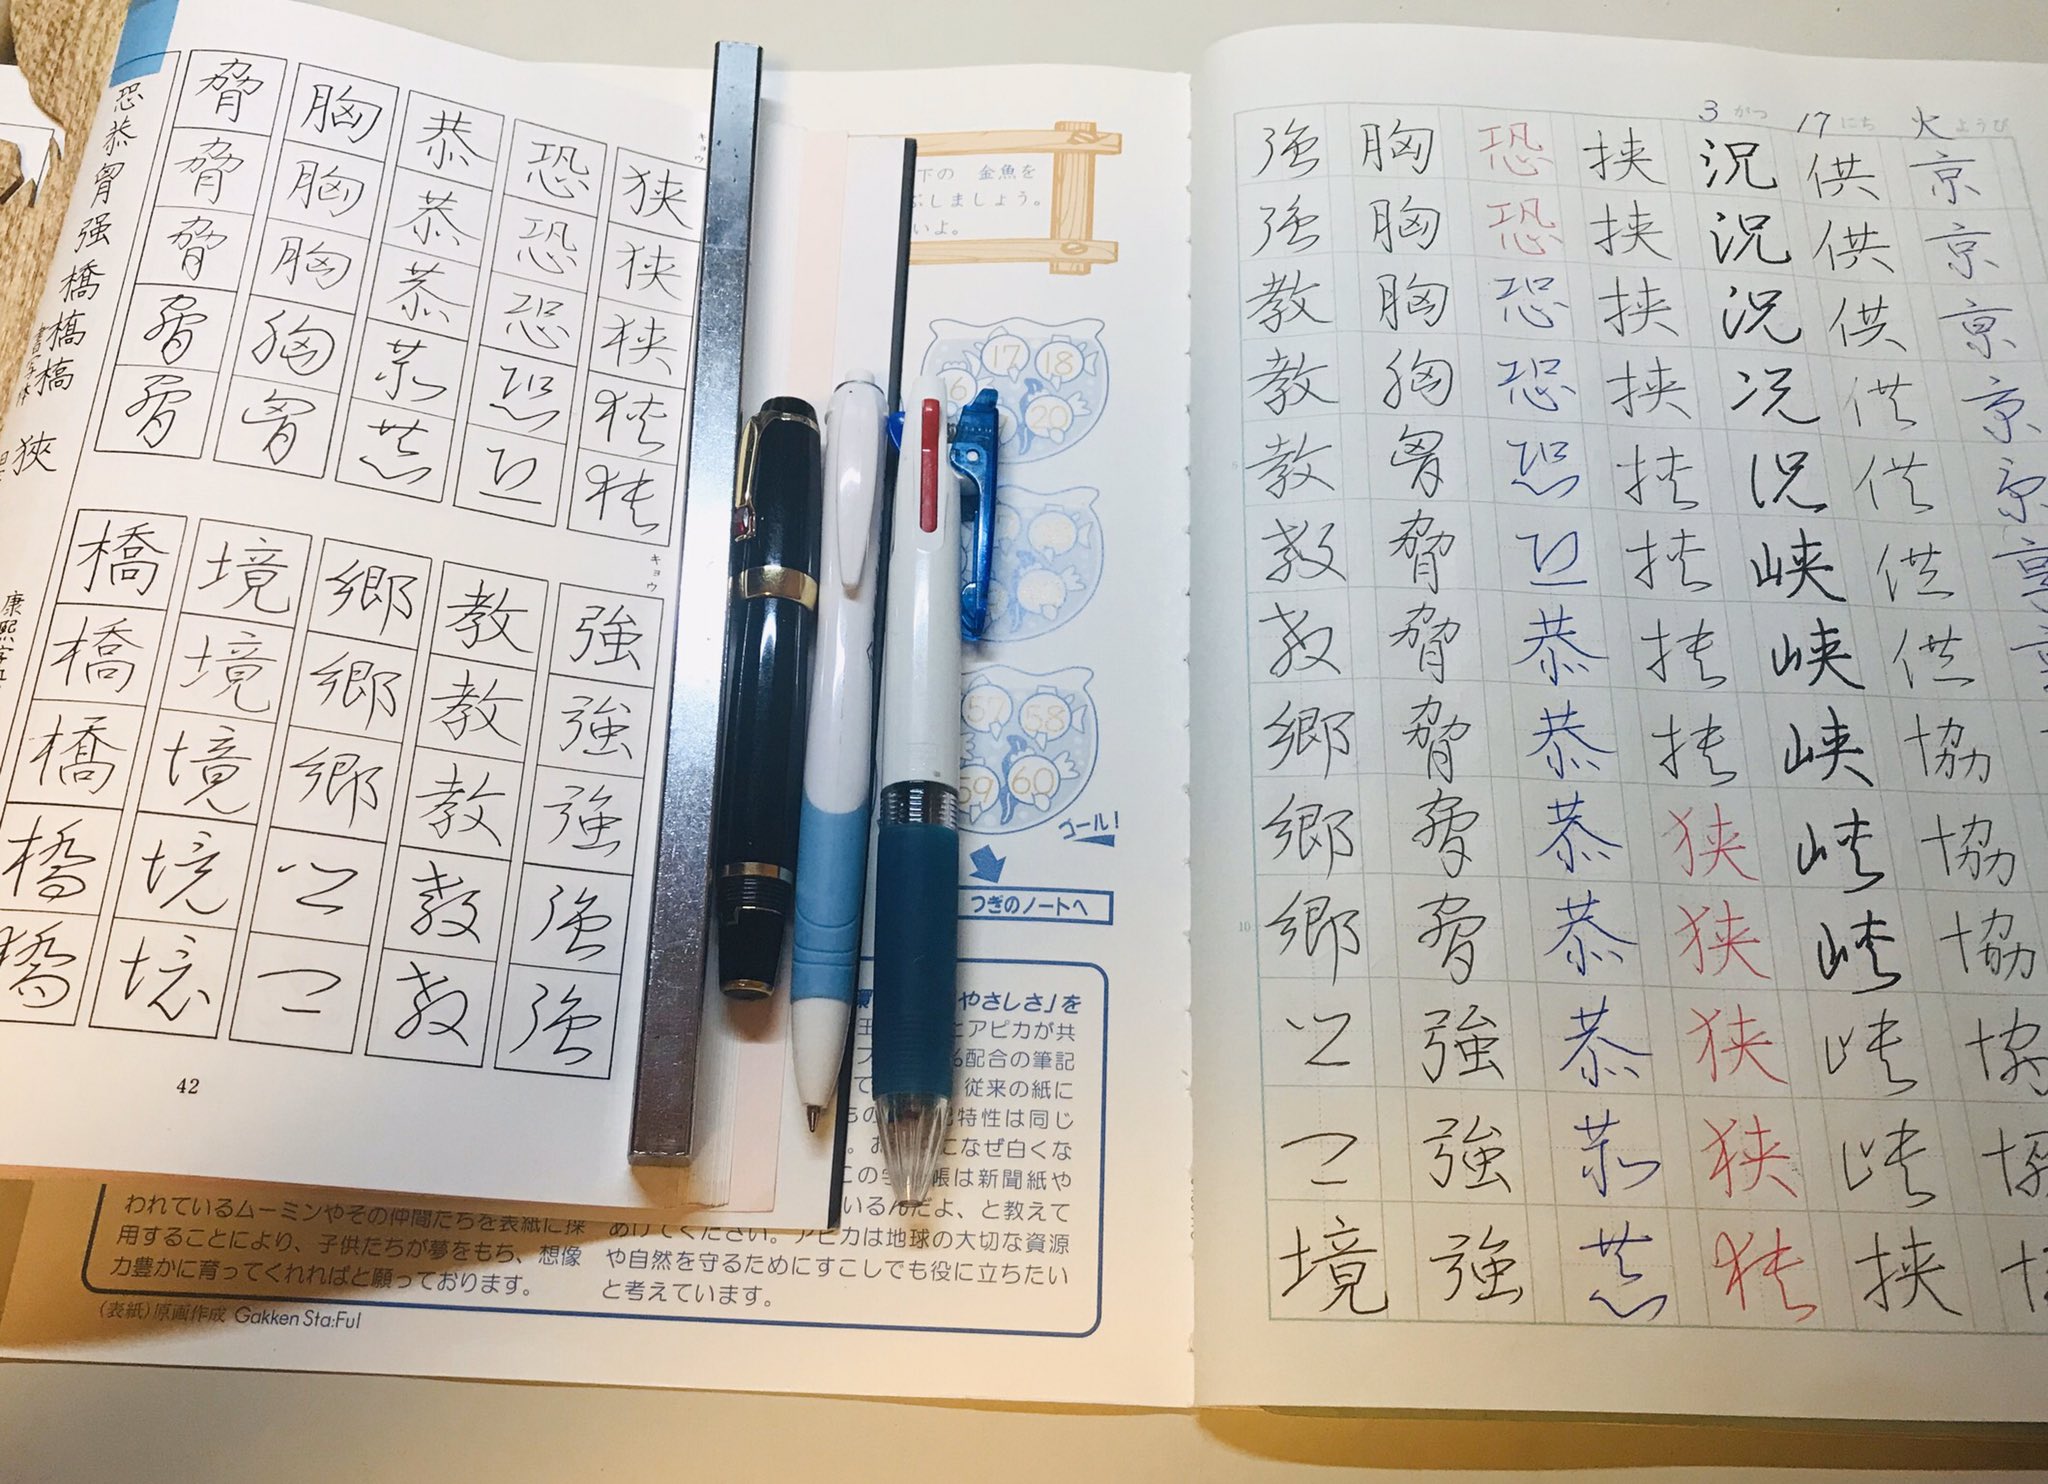 キョウ
狭狭狭狭狭
恐恐恐恐恐
恭恭恭恭恭
胸胸胸胸胷
脅脅脅脅脅
キョウ
強強強強強
教教教教教
郷郷郷郷郷
境境境境境
橋橋橋橋橋
恐恭胷强橋
狹
42
下の 金魚を
ぶしましょう。
いよ。
17 18
20
57 58
59 60
ゴール!
つぎのノートへ
やさしさ」を
アピカが共
配合の筆記
従来の紙に
特性は同じ
なぜ白くな
帳は新聞紙や
いるんだよ、と教えて
あげてください。アピカは地球の大切な資源
や自然を守るためにすこしでも役に立ちたい
と考えています。
われているムーミンやその仲間たちを表紙に採
用することにより、子供たちが夢をもち、想像
力豊かに育ってくれればと願っております。
(表紙)原画作成 Gakken Sta:Ful
3がつ 17にち 火ようび
京京京京京京
供供供供供供供協協協協協
況況況況況峡峡峡峡峡峡峡挟
挟挟挟挟挟挟挟挟狭狭狭狭狭
恐恐恐恐恐恐恭恭恭恭恭恭恭
胸胸胸胸胷脅脅脅脅脅強強強
強強教教教教教郷郷郷郷郷境
5
10